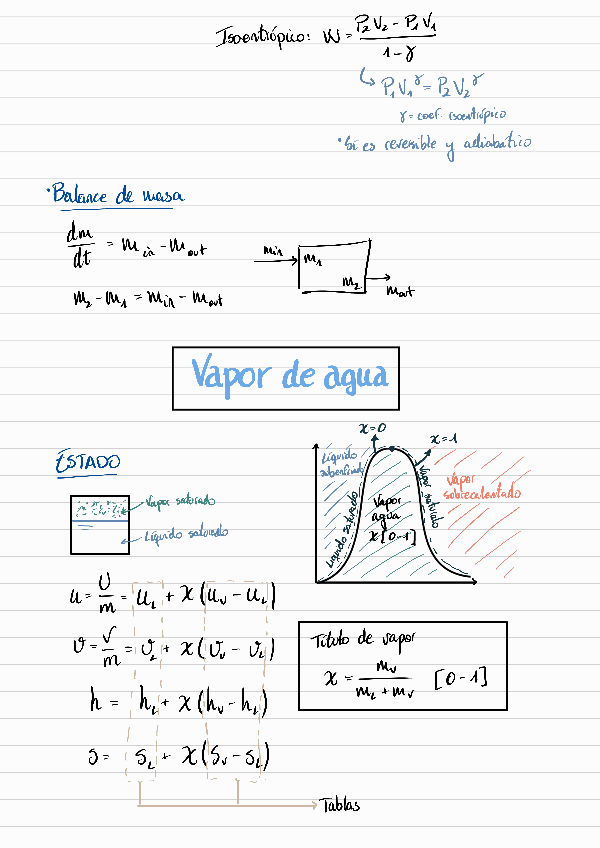 Isoentrópico: W = P₂V₂ - P₁V₁ / 1-γ
P₁V₁^γ = P₂V₂^γ
γ = coef. isoentrópico
• Si es reversible y adiabático
• Balance de masa
dm/dt = m_in - m_out
m₂ - m₁ = m_in - m_out
m_in
m₁
m₂
m_out
Vapor de agua
ESTADO
Vapor saturado
Líquido saturado
x=0
x=1
Líquido
subenfriado
Líquido saturado
Vapor
agua
x [0-1]
Vapor saturado
Vapor
sobrecalentado
u = U/m = u_L + x (u_v - u_L)
v = V/m = v_L + x (v_v - v_L)
h = h_L + x (h_v - h_L)
s = s_L + x (s_v - s_L)
Tablas
Título de vapor
x = m_v / m_L + m_v [0-1]